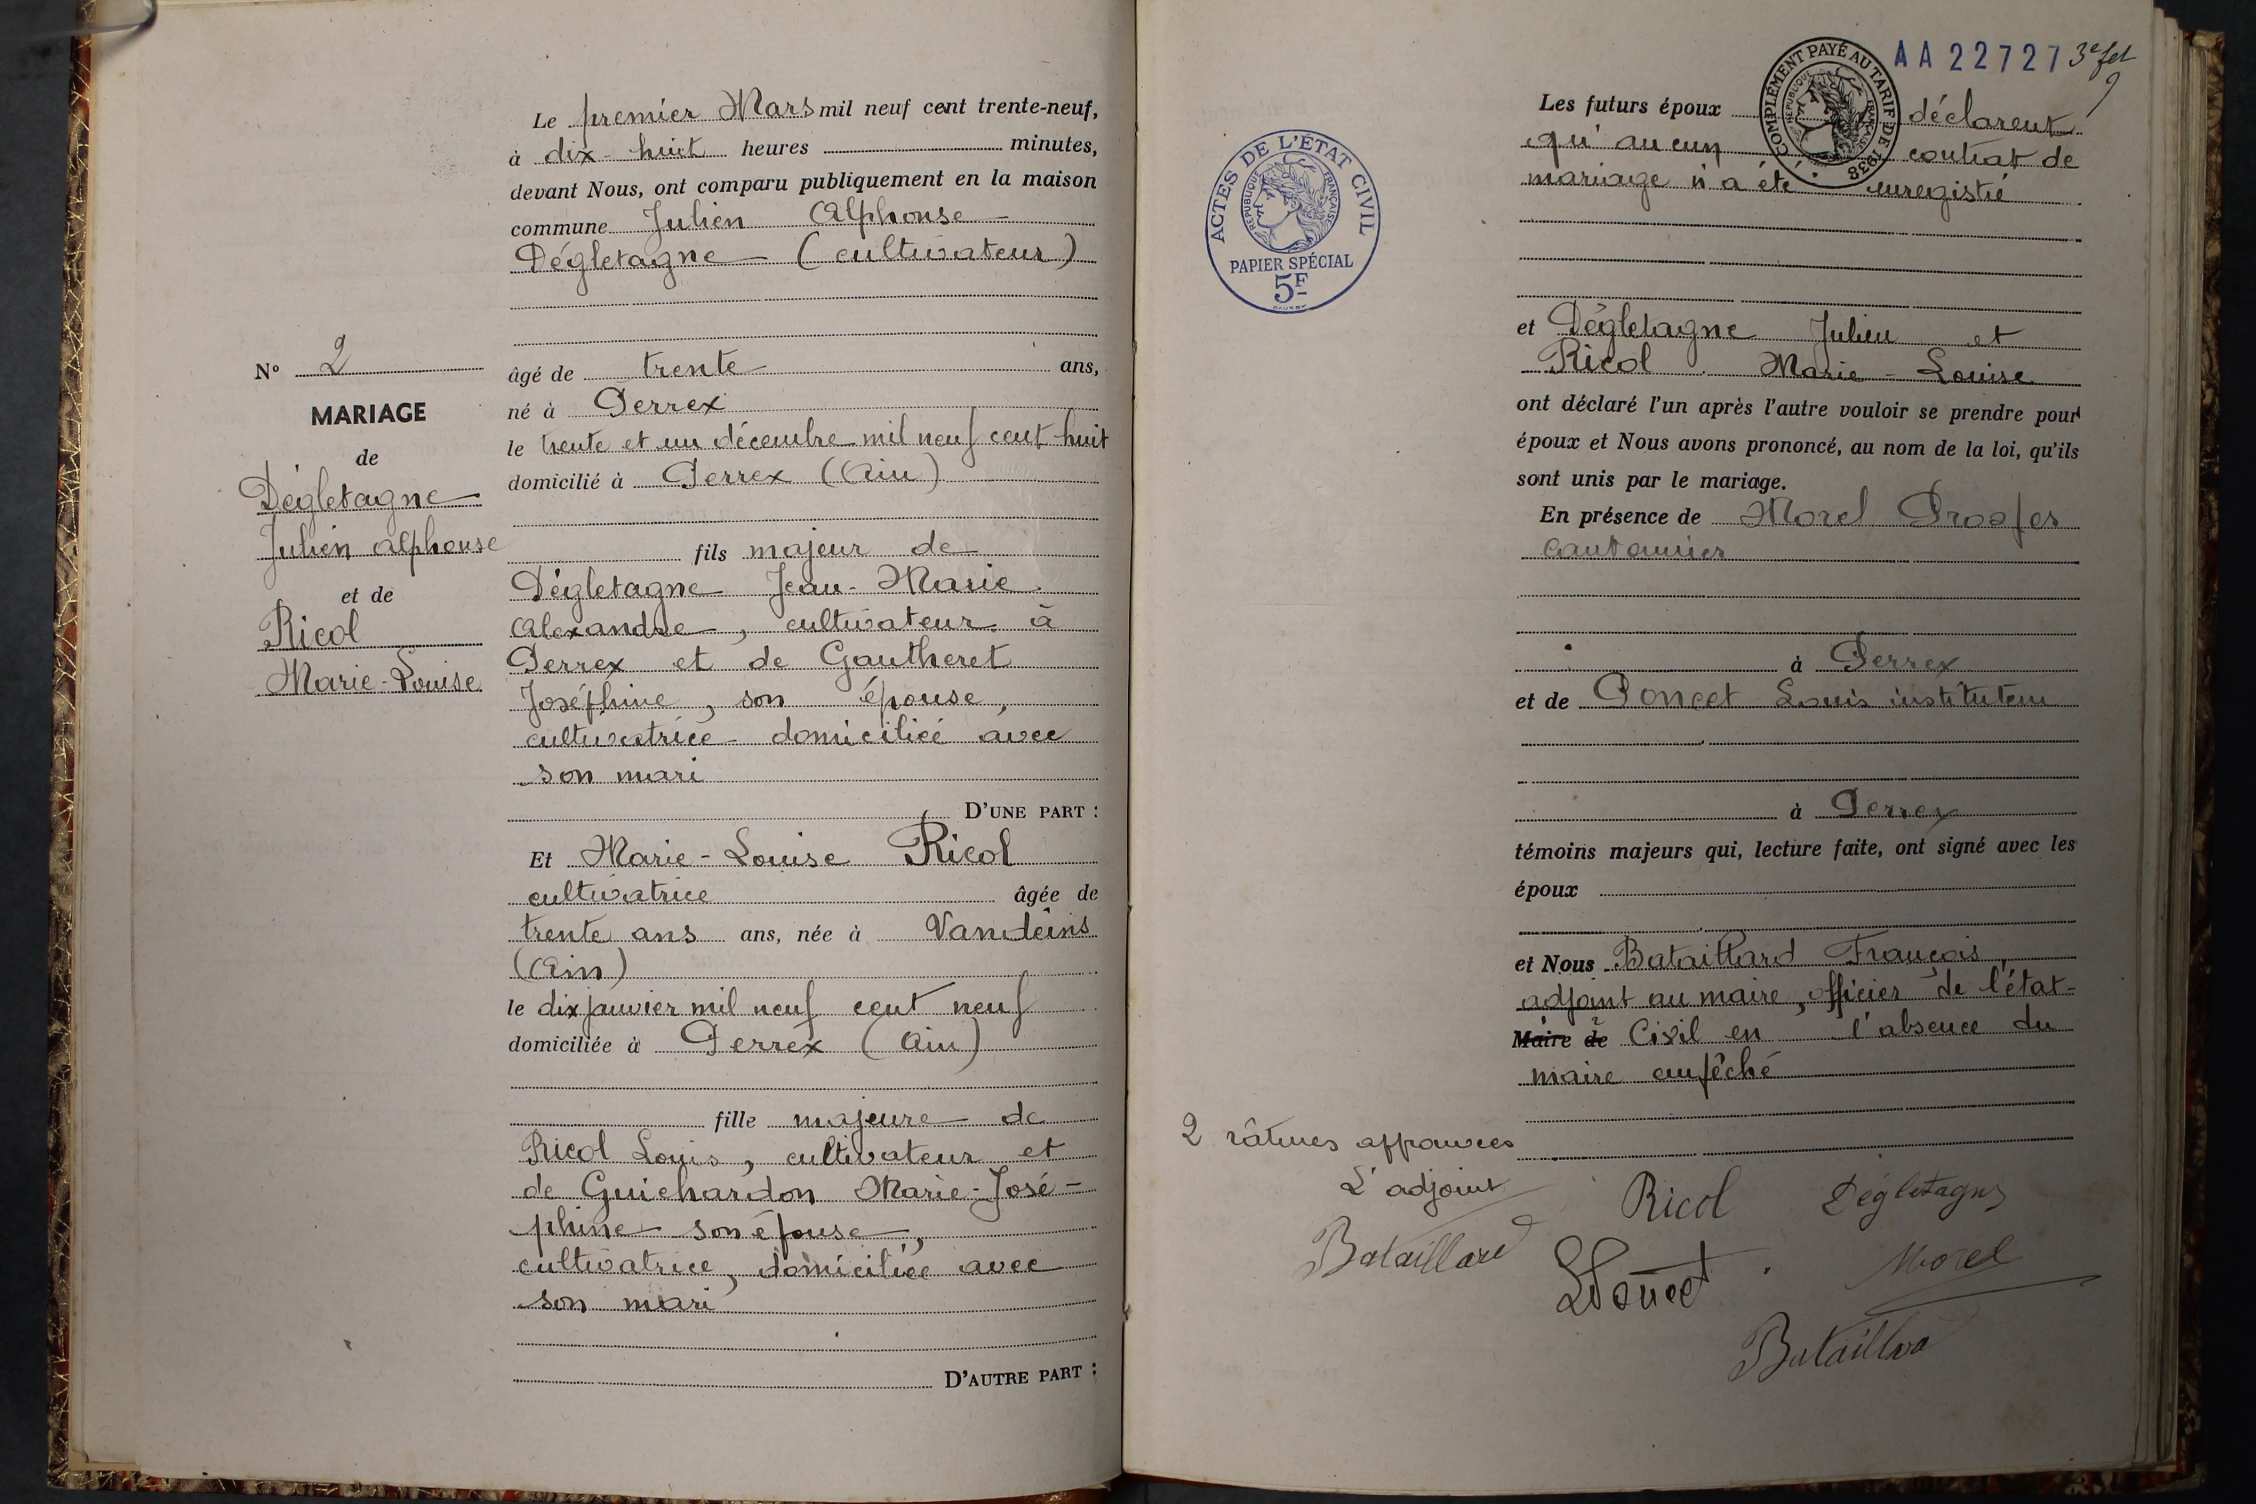 Le premier Mars mil neuf cent trente-neuf,
à dix-huit heures minutes,
devant Nous, ont comparu publiquement en la maison
commune Julien Alphonse
Dégletagne (cultivateur)
âgé de trente ans,
né à Perrex
le trente et un décembre mil neuf cent huit
domicilié à Perrex (Ain)
fils majeur de
Dégletagne Jean-Marie
Alexandre, cultivateur à
Perrex et de Gautheret
Joséphine, son épouse,
cultivatrice domiciliée avec
son mari
D'UNE PART :
Et Marie-Louise Ricol
cultivatrice âgée de
trente ans ans, née à Vandeins
(Ain)
le dix janvier mil neuf cent neuf
domiciliée à Perrex (Ain)
fille majeure de
Ricol Louis, cultivateur et
de Guichardon Marie-José-
phine son épouse,
cultivatrice, domiciliée avec
son mari
D'AUTRE PART :
N° 2
MARIAGE
de
Dégletagne
Julien Alphonse
et de
Ricol
Marie-Louise
AA 22727 3e
COMPLÉMENT PAYÉ AU TARIF DE 1938
RÉPUBLIQUE FRANÇAISE
ACTES DE L'ÉTAT CIVIL
RÉPUBLIQUE FRANÇAISE
PAPIER SPÉCIAL
5F
Les futurs époux déclarent
qu'aucun contrat de
mariage n'a été enregistré
et Dégletagne Julien et
Ricol Marie-Louise
ont déclaré l'un après l'autre vouloir se prendre pour
époux et Nous avons prononcé, au nom de la loi, qu'ils
sont unis par le mariage.
En présence de Morel
cantonnier
à Perrex
et de Poncet Louis instituteur
à Perrex
témoins majeurs qui, lecture faite, ont signé avec les
époux
et Nous Bataillard François,
adjoint au maire, officier de l'état-
Maire de Civil en l'absence du
maire empêché
2 râtures approuvées
L'adjoint
Bataillard
Ricol Dégletagne
LPoncet Morel
Bataillard